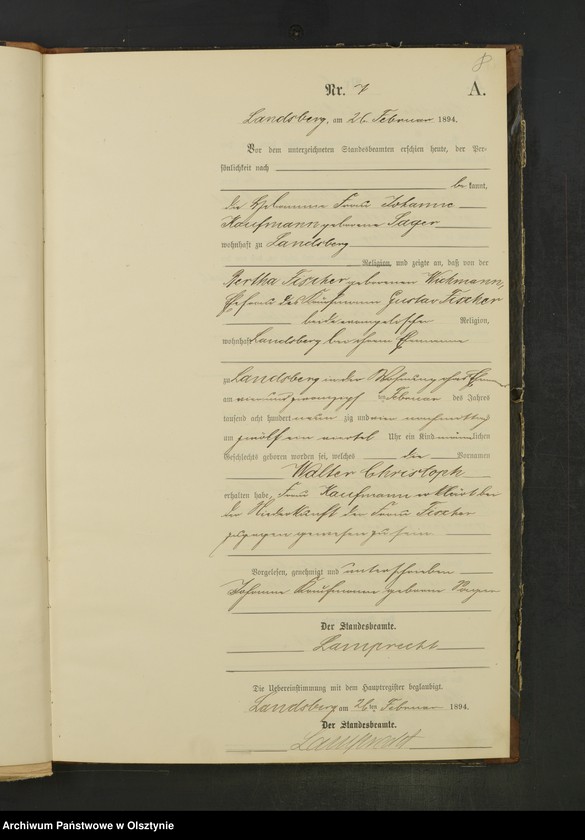 8
Nr. 7 A.
Landsberg, am 26. Februar 1894.
Vor dem unterzeichneten Standesbeamten erschien heute, der Per-
sönlichkeit nach
bekannt,
die Hebamme Frau Johanne
Kaufmann geborene Sager
wohnhaft zu Landsberg
Religion, und zeigte an, daß von der
Bertha Fischer geborenen Wichmann,
Ehefrau des Kaufmann Gustav Fischer
beide evangelischer Religion,
wohnhaft Landsberg bei ihrem Ehemanne
zu Landsberg in der Wohnung ihres
am vierundzwanzigsten Februar des Jahres
tausend acht hundert neunzig und vier nachmittags
am zwölf ein viertel Uhr ein Kind männlichen
Geschlechts geboren worden sei, welches die Vornamen
Walter Christoph
erhalten habe, Frau Kaufmann erklärt bei
der Niederkunft der Frau Fischer
zugegen gewesen zu sein
Vorgelesen, genehmigt und unterschrieben
Johanne Kaufmann geborene Sager
Der Standesbeamte.
Lamprecht
Die Uebereinstimmung mit dem Hauptregister beglaubigt.
Landsberg am 26ten Februar 1894.
Der Standesbeamte.
Lamprecht
Archiwum Państwowe w Olsztynie